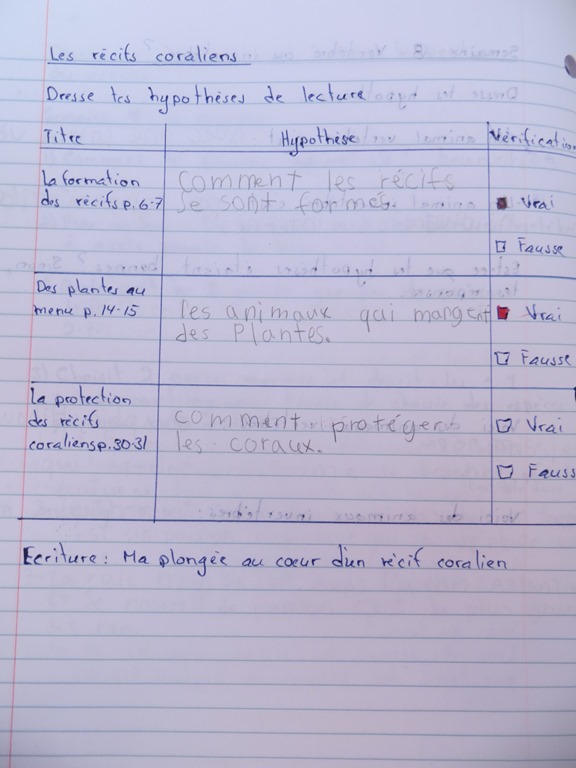 Les récifs coraliens
Dresse tes hypothèses de lecture
Titre Hypothèse Vérification
La formation
des récifs p. 6-7
comment les récifs
se sont formés.
Vrai
Fausse
Des plantes au
menu p. 14-15
les animaux qui mangent
des Plantes.
Vrai
Fausse
La protection
des récifs
coraliens p. 30-31
comment protéger
les coraux.
Vrai
Fauss
Ecriture : Ma plongée au cœur d'un récif coralien